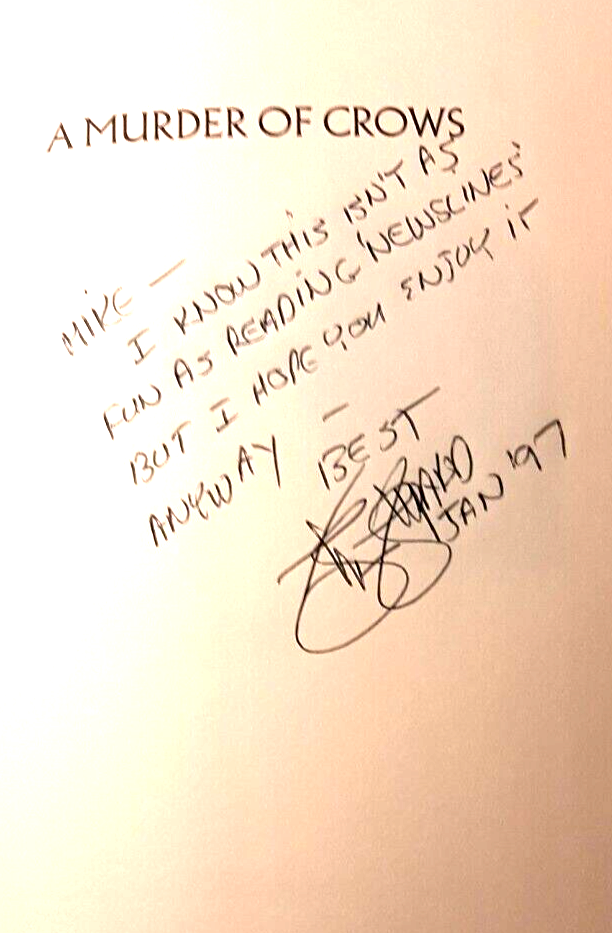 A MURDER OF CROWS
MIKE —
I KNOW THIS ISN'T AS
FUN AS READING 'NEWSLINES'
BUT I HOPE YOU ENJOY IT
ANYWAY —
BEST
JAN '97